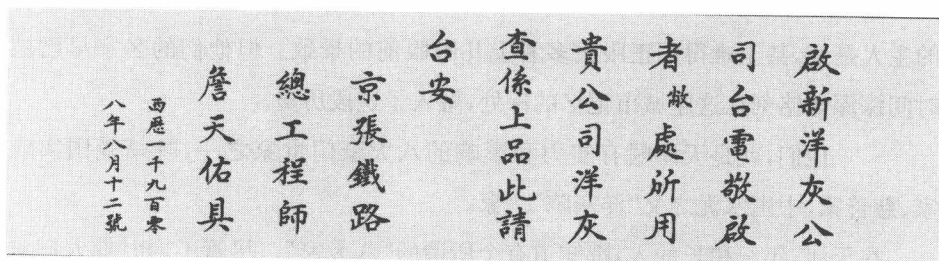 啟新洋灰公
司台電敬啟
者敝處所用
貴公司洋灰
查係上品此請
台安
京張鐵路
總工程師
詹天佑具
西歷一千九百零
八年八月十二號